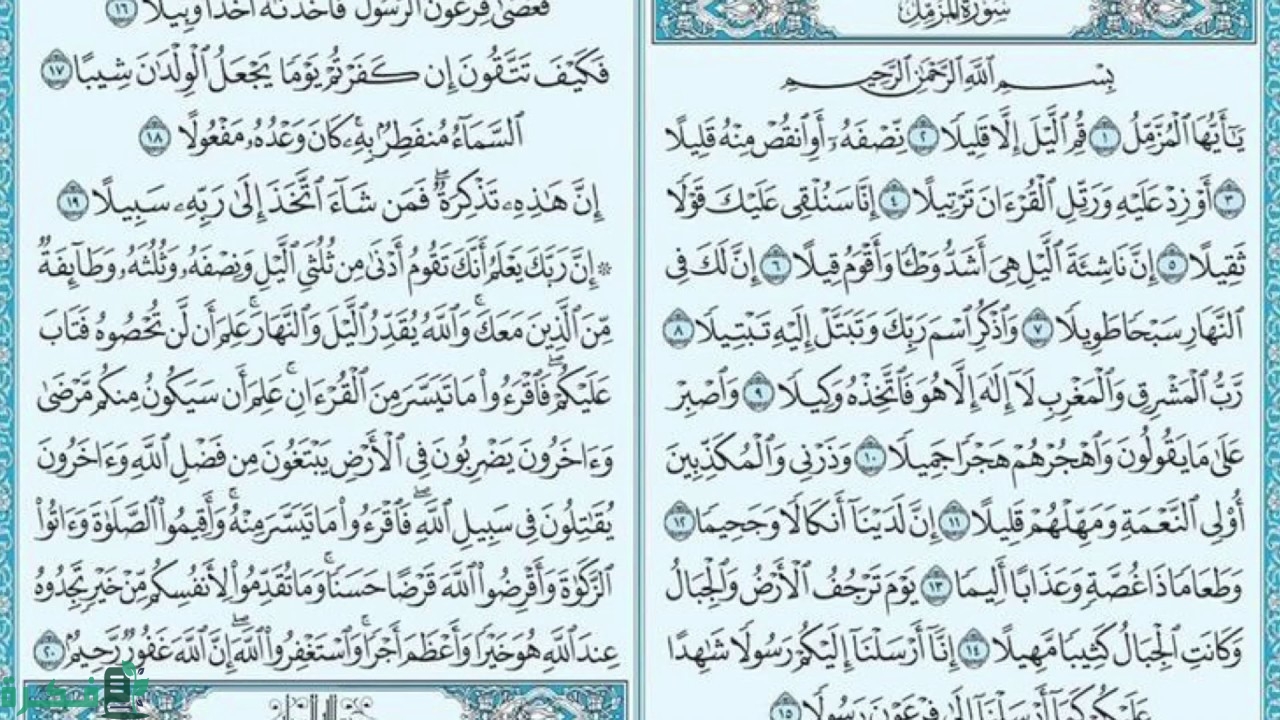 سُورَةُ الْمُزَّمِّلِ
بِسْمِ ٱللَّهِ ٱلرَّحْمَٰنِ ٱلرَّحِيمِ
يَٰٓأَيُّهَا ٱلْمُزَّمِّلُ ١ قُمِ ٱلَّيْلَ إِلَّا قَلِيلًا ٢ نِّصْفَهُۥٓ أَوِ ٱنقُصْ مِنْهُ قَلِيلًا
٣ أَوْ زِدْ عَلَيْهِ وَرَتِّلِ ٱلْقُرْءَانَ تَرْتِيلًا ٤ إِنَّا سَنُلْقِى عَلَيْكَ قَوْلًا
ثَقِيلًا ٥ إِنَّ نَاشِئَةَ ٱلَّيْلِ هِىَ أَشَدُّ وَطْـًٔا وَأَقْوَمُ قِيلًا ٦ إِنَّ لَكَ فِى
ٱلنَّهَارِ سَبْحًا طَوِيلًا ٧ وَٱذْكُرِ ٱسْمَ رَبِّكَ وَتَبَتَّلْ إِلَيْهِ تَبْتِيلًا ٨
رَّبُّ ٱلْمَشْرِقِ وَٱلْمَغْرِبِ لَآ إِلَٰهَ إِلَّا هُوَ فَٱتَّخِذْهُ وَكِيلًا ٩ وَٱصْبِرْ
عَلَىٰ مَا يَقُولُونَ وَٱهْجُرْهُمْ هَجْرًا جَمِيلًا ١٠ وَذَرْنِى وَٱلْمُكَذِّبِينَ
أُو۟لِى ٱلنَّعْمَةِ وَمَهِّلْهُمْ قَلِيلًا ١١ إِنَّ لَدَيْنَآ أَنكَالًا وَجَحِيمًا ١٢
وَطَعَامًا ذَا غُصَّةٍ وَعَذَابًا أَلِيمًا ١٣ يَوْمَ تَرْجُفُ ٱلْأَرْضُ وَٱلْجِبَالُ
وَكَانَتِ ٱلْجِبَالُ كَثِيبًا مَّهِيلًا ١٤ إِنَّآ أَرْسَلْنَآ إِلَيْكُمْ رَسُولًا شَٰهِدًا
عَلَيْكُمْ كَمَآ أَرْسَلْنَآ إِلَىٰ فِرْعَوْنَ رَسُولًا ١٥
فَعَصَىٰ فِرْعَوْنُ ٱلرَّسُولَ فَأَخَذْنَٰهُ أَخْذًا وَبِيلًا ١٦
فَكَيْفَ تَتَّقُونَ إِن كَفَرْتُمْ يَوْمًا يَجْعَلُ ٱلْوِلْدَٰنَ شِيبًا ١٧
ٱلسَّمَآءُ مُنفَطِرٌۢ بِهِۦ كَانَ وَعْدُهُۥ مَفْعُولًا ١٨
إِنَّ هَٰذِهِۦ تَذْكِرَةٌ فَمَن شَآءَ ٱتَّخَذَ إِلَىٰ رَبِّهِۦ سَبِيلًا ١٩
* إِنَّ رَبَّكَ يَعْلَمُ أَنَّكَ تَقُومُ أَدْنَىٰ مِن ثُلُثَىِ ٱلَّيْلِ وَنِصْفَهُۥ وَثُلُثَهُۥ وَطَآئِفَةٌ
مِّنَ ٱلَّذِينَ مَعَكَ وَٱللَّهُ يُقَدِّرُ ٱلَّيْلَ وَٱلنَّهَارَ عَلِمَ أَن لَّن تُحْصُوهُ فَتَابَ
عَلَيْكُمْ فَٱقْرَءُوا۟ مَا تَيَسَّرَ مِنَ ٱلْقُرْءَانِ عَلِمَ أَن سَيَكُونُ مِنكُم مَّرْضَىٰ
وَءَاخَرُونَ يَضْرِبُونَ فِى ٱلْأَرْضِ يَبْتَغُونَ مِن فَضْلِ ٱللَّهِ وَءَاخَرُونَ
يُقَٰتِلُونَ فِى سَبِيلِ ٱللَّهِ فَٱقْرَءُوا۟ مَا تَيَسَّرَ مِنْهُ وَأَقِيمُوا۟ ٱلصَّلَوٰةَ وَءَاتُوا۟
ٱلزَّكَوٰةَ وَأَقْرِضُوا۟ ٱللَّهَ قَرْضًا حَسَنًا وَمَا تُقَدِّمُوا۟ لِأَنفُسِكُم مِّنْ خَيْرٍ تَجِدُوهُ
عِندَ ٱللَّهِ هُوَ خَيْرًا وَأَعْظَمَ أَجْرًا وَٱسْتَغْفِرُوا۟ ٱللَّهَ إِنَّ ٱللَّهَ غَفُورٌ رَّحِيمٌۢ ٢٠
فكرة